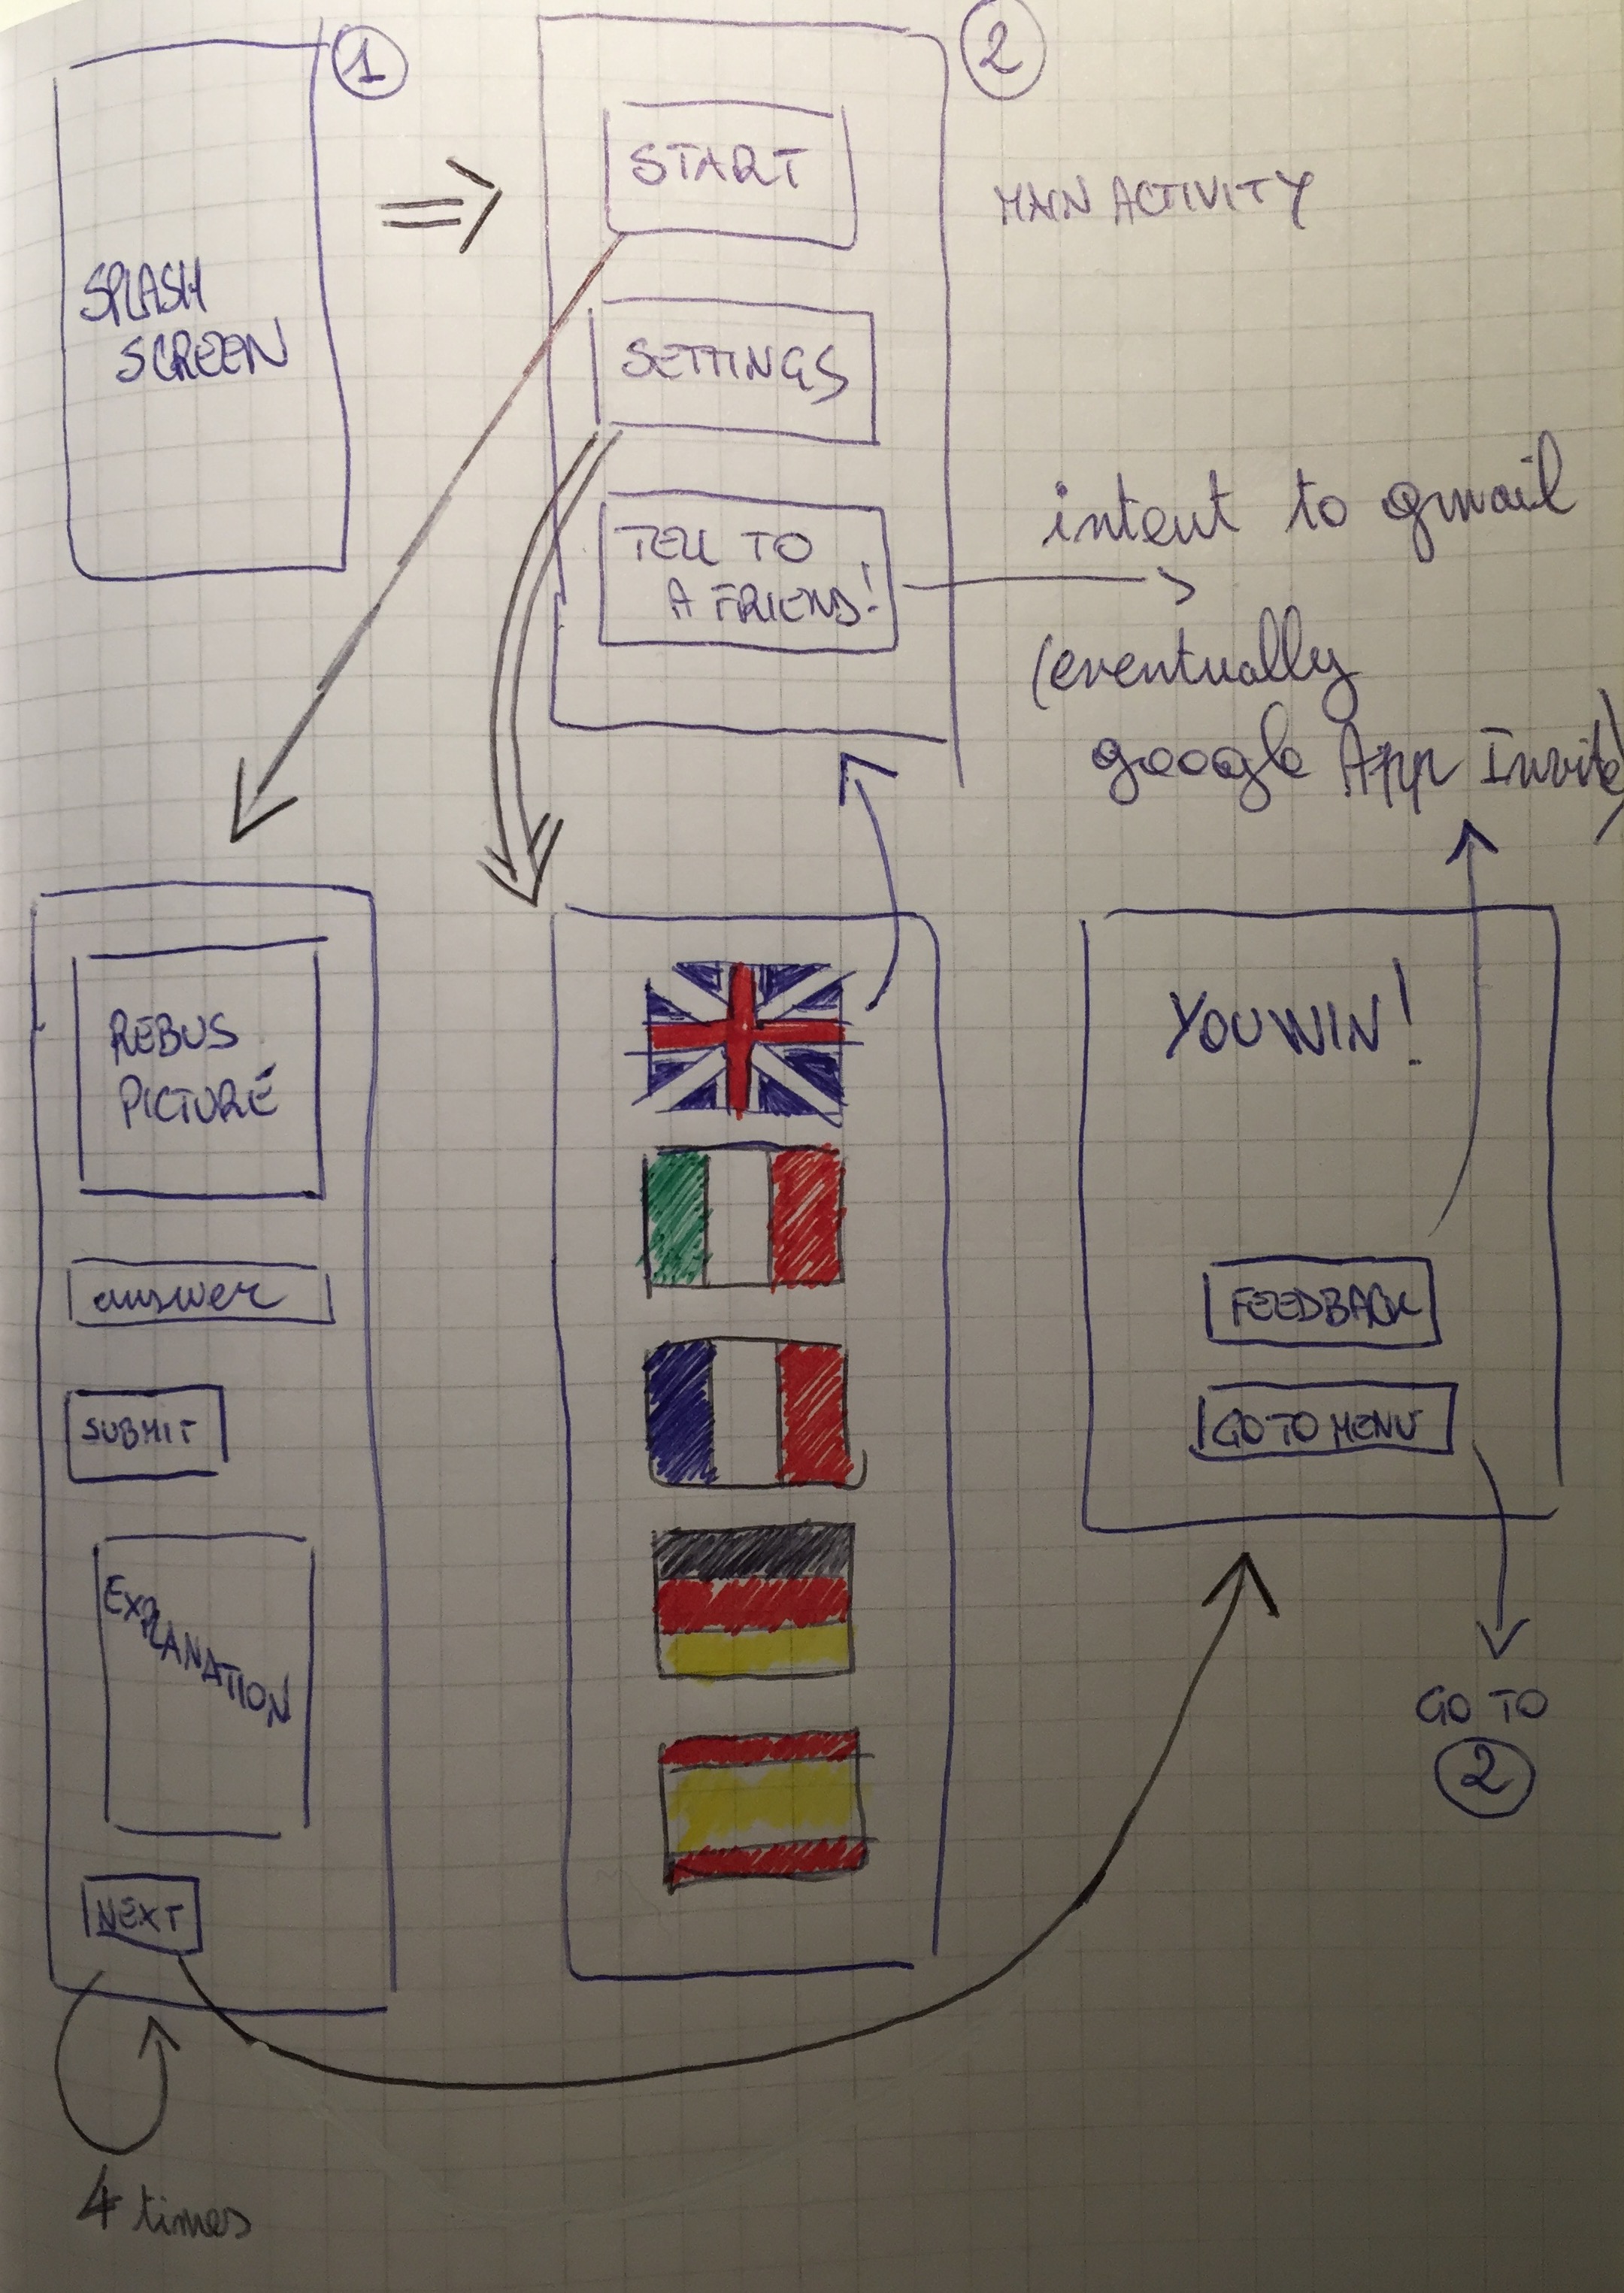 1
SPLASH
SCREEN
2
START
MAIN ACTIVITY
SETTINGS
TELL TO
A FRIEND!
intent to gmail
(eventually
google App Invite)
REBUS
PICTURE
answer
SUBMIT
EXPLANATION
NEXT
4 times
YOU WIN!
FEEDBACK
GO TO MENU
GO TO
2